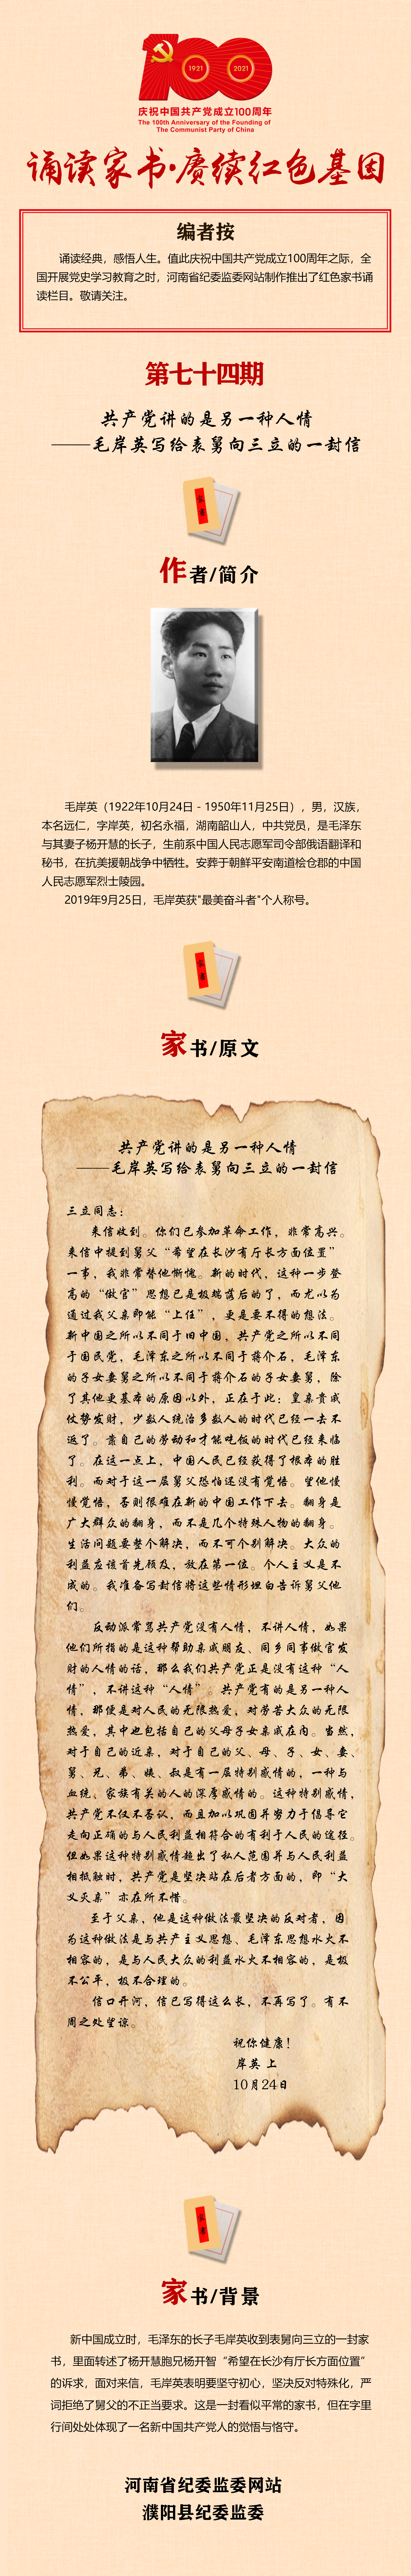 100
1921
2021
庆祝中国共产党成立100周年
The 100th Anniversary of the Founding of
The Communist Party of China
诵读家书·赓续红色基因
编者按
诵读经典，感悟人生。值此庆祝中国共产党成立100周年之际，全
国开展党史学习教育之时，河南省纪委监委网站制作推出了红色家书诵
读栏目。敬请关注。
第七十四期
共产党讲的是另一种人情
——毛岸英写给表舅向三立的一封信
家书
作者/简介
毛岸英（1922年10月24日－1950年11月25日），男，汉族，
本名远仁，字岸英，初名永福，湖南韶山人，中共党员，是毛泽东
与其妻子杨开慧的长子，生前系中国人民志愿军司令部俄语翻译和
秘书，在抗美援朝战争中牺牲。安葬于朝鲜平安南道桧仓郡的中国
人民志愿军烈士陵园。
2019年9月25日，毛岸英获"最美奋斗者"个人称号。
家书
家书/原文
共产党讲的是另一种人情
——毛岸英写给表舅向三立的一封信
三立同志：
来信收到。你们已参加革命工作，非常高兴。
来信中提到舅父“希望在长沙有厅长方面位置”
一事，我非常替他惭愧。新的时代，这种一步登
高的“做官”思想已是极端落后的了，而尤以为
通过我父亲即能“上任”，更是要不得的想法。
新中国之所以不同于旧中国，共产党之所以不同
于国民党，毛泽东之所以不同于蒋介石，毛泽东
的子女妻舅之所以不同于蒋介石的子女妻舅，除
了其他更基本的原因以外，正在于此：皇亲贵戚
仗势发财，少数人统治多数人的时代已经一去不
返了。靠自己的劳动和才能吃饭的时代已经来临
了。在这一点上，中国人民已经获得了根本的胜
利。而对于这一层舅父恐怕还没有觉悟。望他慢
慢觉悟，否则很难在新的中国工作下去。翻身是
广大群众的翻身，而不是几个特殊人物的翻身。
生活问题要整个解决，而不可个别解决。大众的
利益应该首先顾及，放在第一位。个人主义是不
成的。我准备写封信将这些情形坦白告诉舅父他
们。
反动派常骂共产党没有人情，不讲人情，如果
他们所指的是这种帮助亲戚朋友、同乡同事做官发
财的人情的话，那么我们共产党正是没有这种“人
情”，不讲这种“人情”。共产党有的是另一种人
情，那便是对人民的无限热爱，对劳苦大众的无限
热爱，其中也包括自己的父母子女亲戚在内。当然，
对于自己的近亲，对于自己的父、母、子、女、妻、
舅、兄、弟、姨、叔是有一层特别感情的，一种与
血统、家族有关的人的深厚感情的。这种特别感情，
共产党不仅不否认，而且加以巩固并努力于倡导它
走向正确的与人民利益相符合的有利于人民的途径。
但如果这种特别感情超出了私人范围并与人民利益
相抵触时，共产党是坚决站在后者方面的，即“大
义灭亲”亦在所不惜。
至于父亲，他是这种做法最坚决的反对者，因
为这种做法是与共产主义思想、毛泽东思想水火不
相容的，是与人民大众的利益水火不相容的，是极
不公平，极不合理的。
信口开河，信已写得这么长，不再写了。有不
周之处望谅。
祝你健康！
岸英 上
10月24日
家书
家书/背景
新中国成立时，毛泽东的长子毛岸英收到表舅向三立的一封家
书，里面转述了杨开慧胞兄杨开智“希望在长沙有厅长方面位置”
的诉求，面对来信，毛岸英表明要坚守初心，坚决反对特殊化，严
词拒绝了舅父的不正当要求。这是一封看似平常的家书，但在字里
行间处处体现了一名新中国共产党人的觉悟与恪守。
河南省纪委监委网站
濮阳县纪委监委